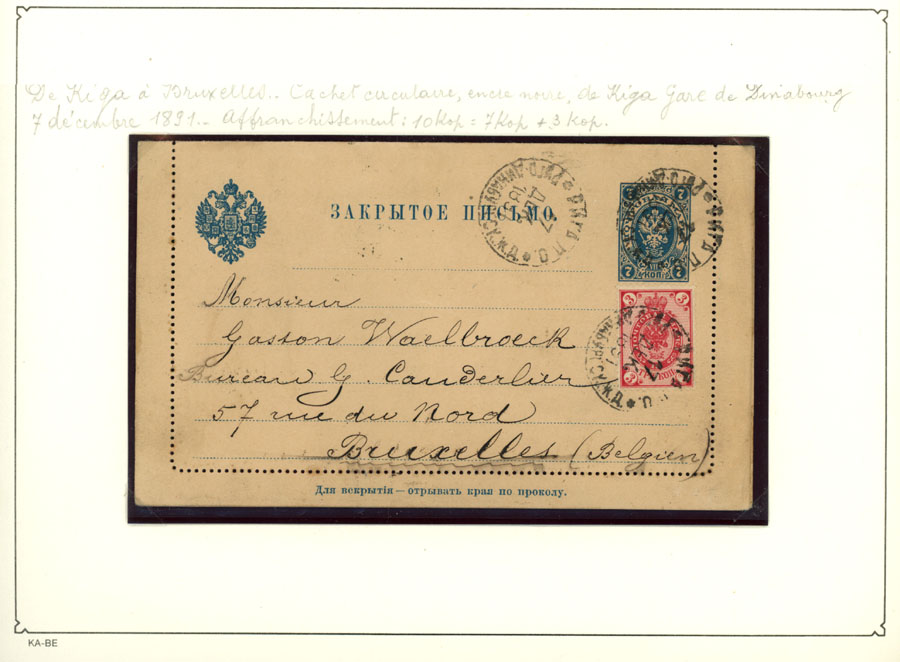 De Riga à Bruxelles.. Cachet circulaire, encre noire, de Riga Gare de Dinabourg
7 décembre 1891.. Affranchissement: 10 Kop = 7 Kop + 3 Kop.
ЗАКРЫТОЕ ПИСЬМО.
7 7
7 КОП. 7
3 3
Monsieur
Gaston Waelbroeck
Bureau G. Canderlier
57 rue du Nord
Bruxelles (Belgien)
Для вскрытія — отрывать края по проколу.
KA-BE